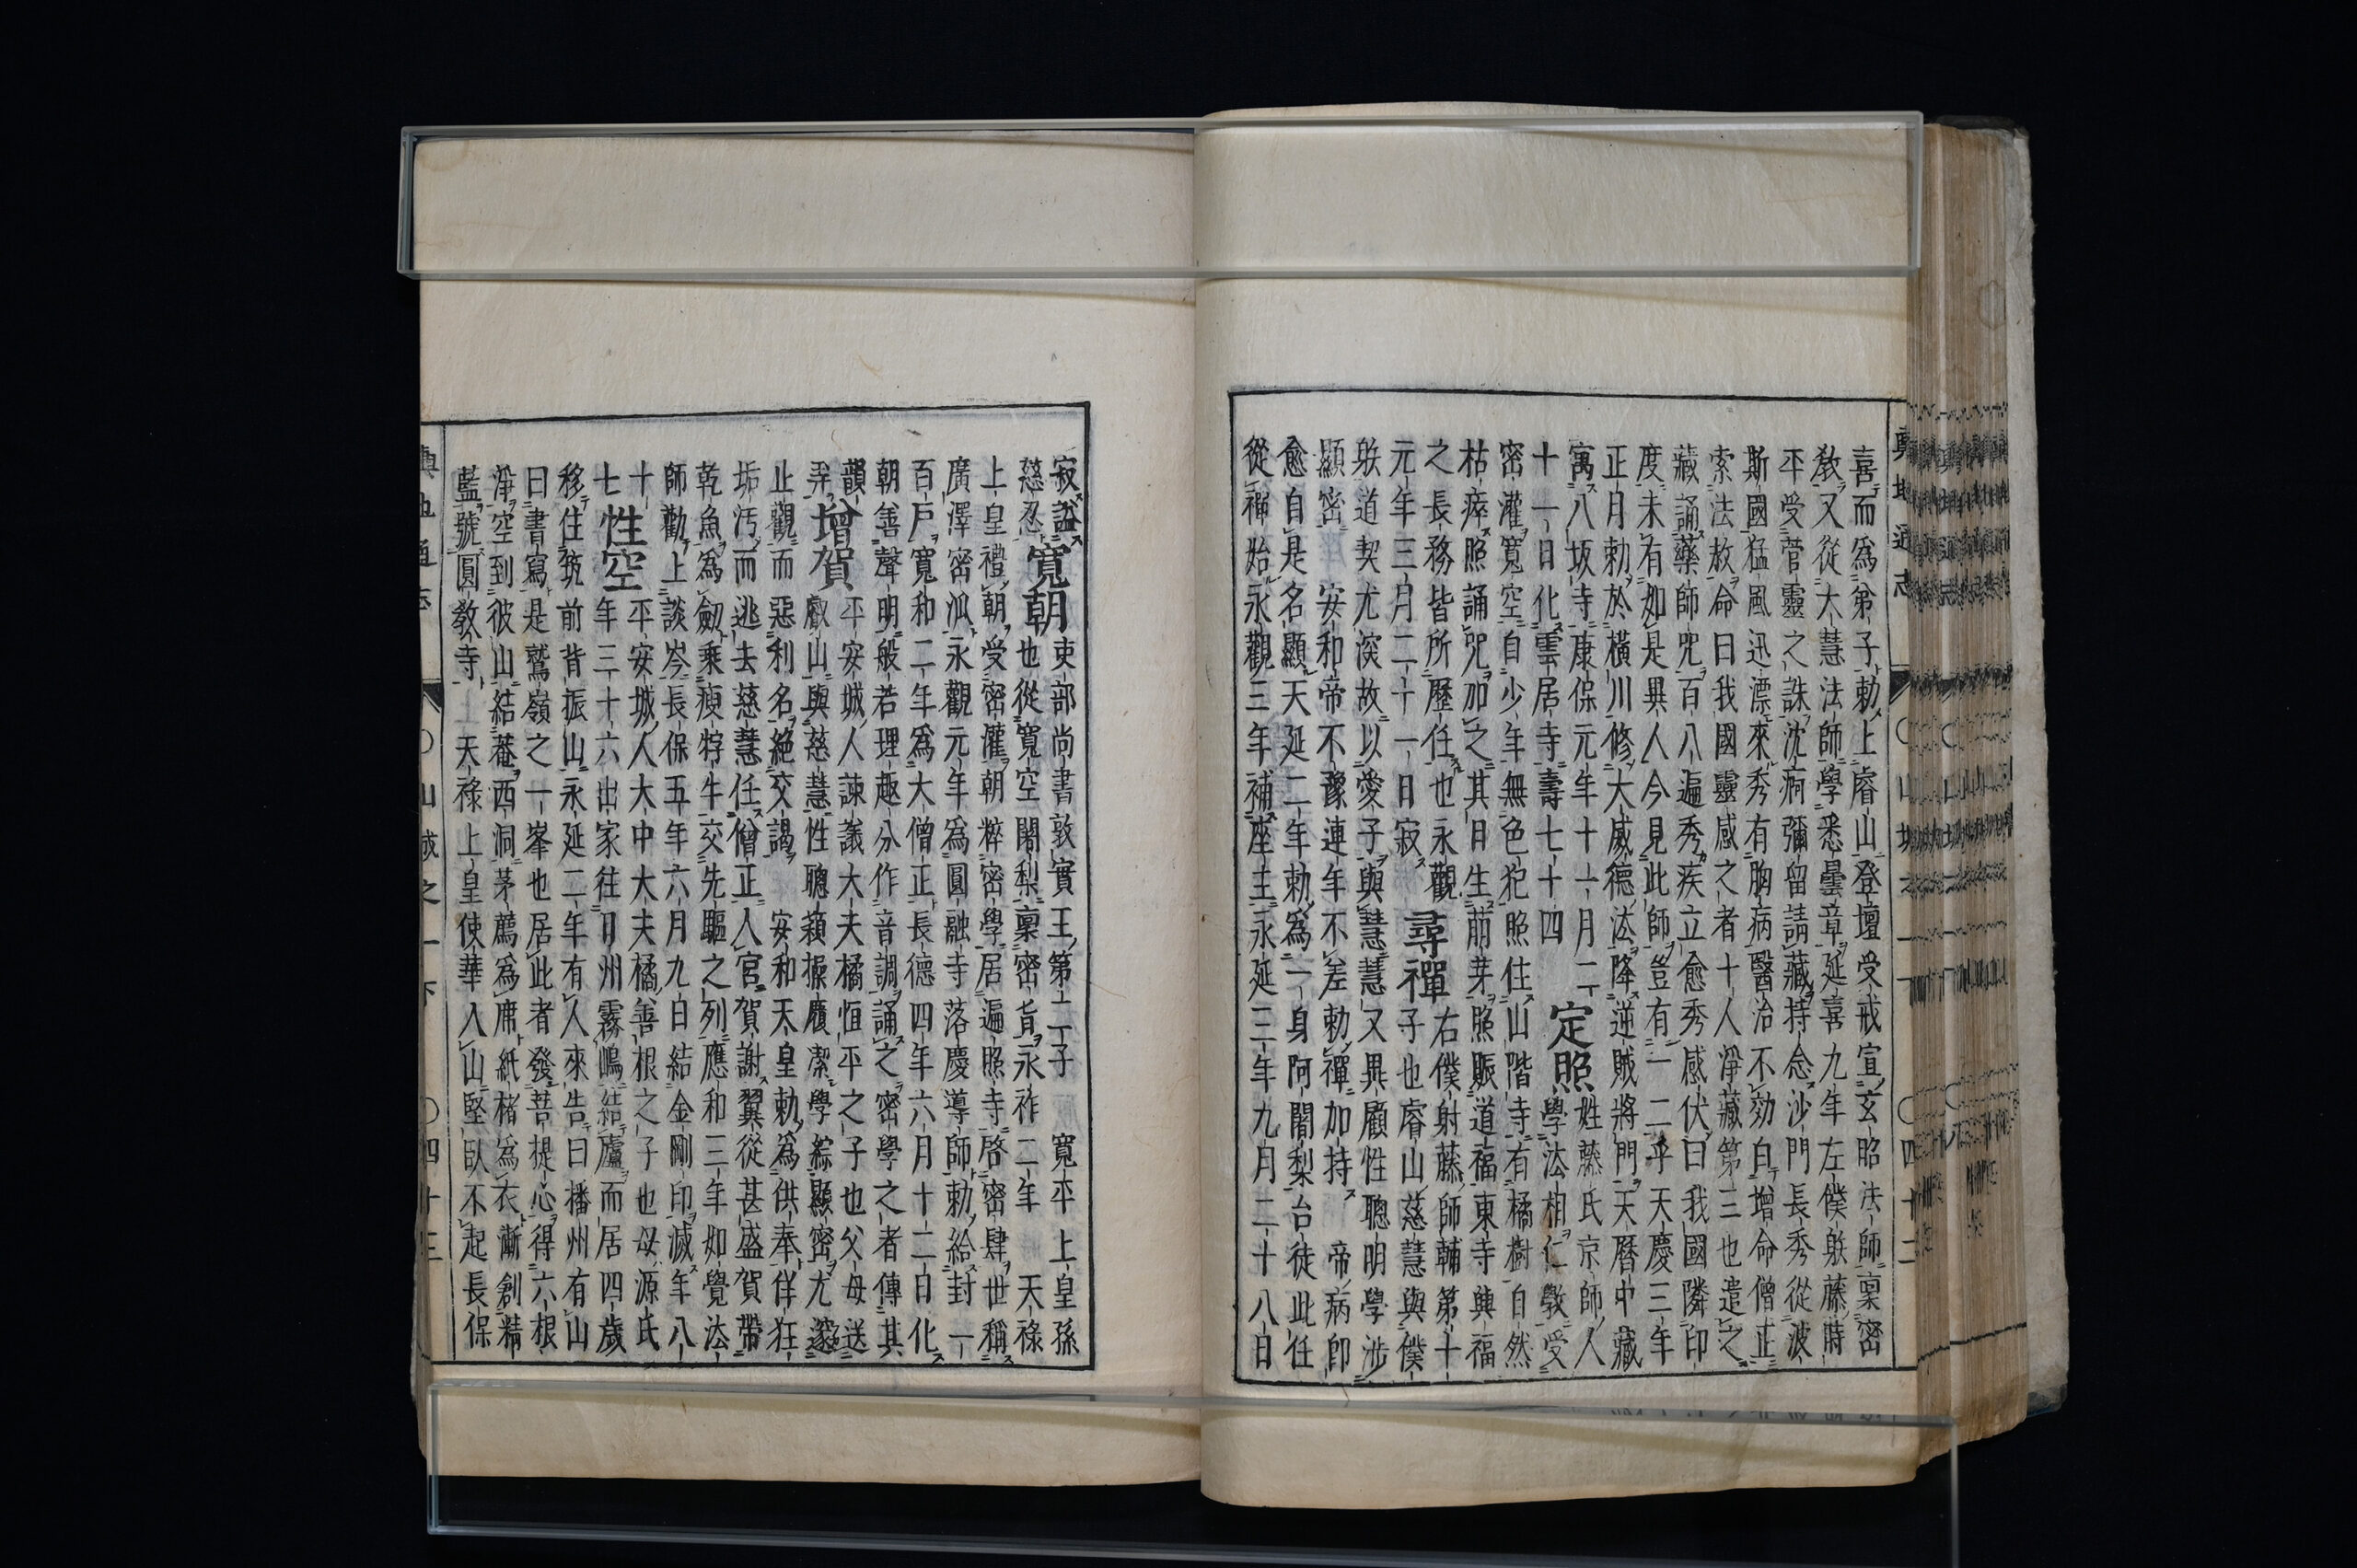 喜而為弟子勅上睿山登壇受戒宣玄昭法師稟密
教又從大慧法師學悉曇章延喜九年左僕射藤時
平受菅靈之誅沈痾彌留請藏持念沙門長秀從波
斯國猛風迅漂來秀有胸病醫治不効白增命僧正
索法赦命曰我國靈感之者十人淨藏第三也遣之
藏誦藥師咒百八遍秀疾立愈秀感伏曰我國隣印
度未有如是異人今見此師豈有一二乎天慶三年
正月勅於橫川修大威德法降逆賊將門天曆中藏
寓八坂寺康保元年十一月二
十一日化雲居寺壽七十四
定照
姓藤氏京師人
學法相仁斅受
密灌寬空自少年無色犯照住山階寺有橘樹自然
枯瘁照誦咒加之其日生萠芽照賑道福東寺興福
之長務皆所歷任也永觀
元年三月二十一日寂
尋禪
右僕射藤師輔第十
子也睿山慈慧與僕
射道契尤深故以愛子與慧慧又異顧性聰明學涉
顯密 安和帝不豫連年不差勅禪加持 帝病卽
愈自是名顯天延二年勅為一身阿闍梨台徒此任
從禪始永觀三年補座主永延三年九月二十八日
輿地通志 〇山城之一下 〇四十二
寂謚
慈忍
寬朝
吏部尚書敦實王第二子 寬平上皇孫
也從寬空闍梨稟密旨永祚二年 天祿
上皇禮朝受密灌朝粹密學居遍照寺啓密肆世稱
廣澤密派永觀元年為圓融寺落慶導師勅給封一
百戶寬和二年為大僧正長德四年六月十二日化
朝善聲明般若理趣分作音調誦之密學之者傳其
韻
增賀
平安城人諫議大夫橘恒平之子也父母送
叡山與慈慧性聰穎操履潔學綜顯密尤邃
止觀而惡利名絕交謁 安和天皇勅為供奉佯狂
垢汚而逃去慈慧任僧正人官賀謝翼從甚盛賀帶
乾魚為劒乘瘦牸牛交先驅之列應和三年如覺法
師勸上談岑長保五年六月九日結金剛印滅年八
十
七
性空
平安城人大中大夫橘善根之子也母源氏
年三十六出家往日州霧嶋結廬而居四歲
移住筑前背振山永延二年有人來告曰播州有山
曰書寫是鷲嶺之一峯也居此者發菩提心得六根
淨空到彼山結菴西洞茅薦為席紙楮為衣漸創精
藍號圓教寺 天祿上皇使華入山堅臥不起長保
〇山城之一下 〇四十三